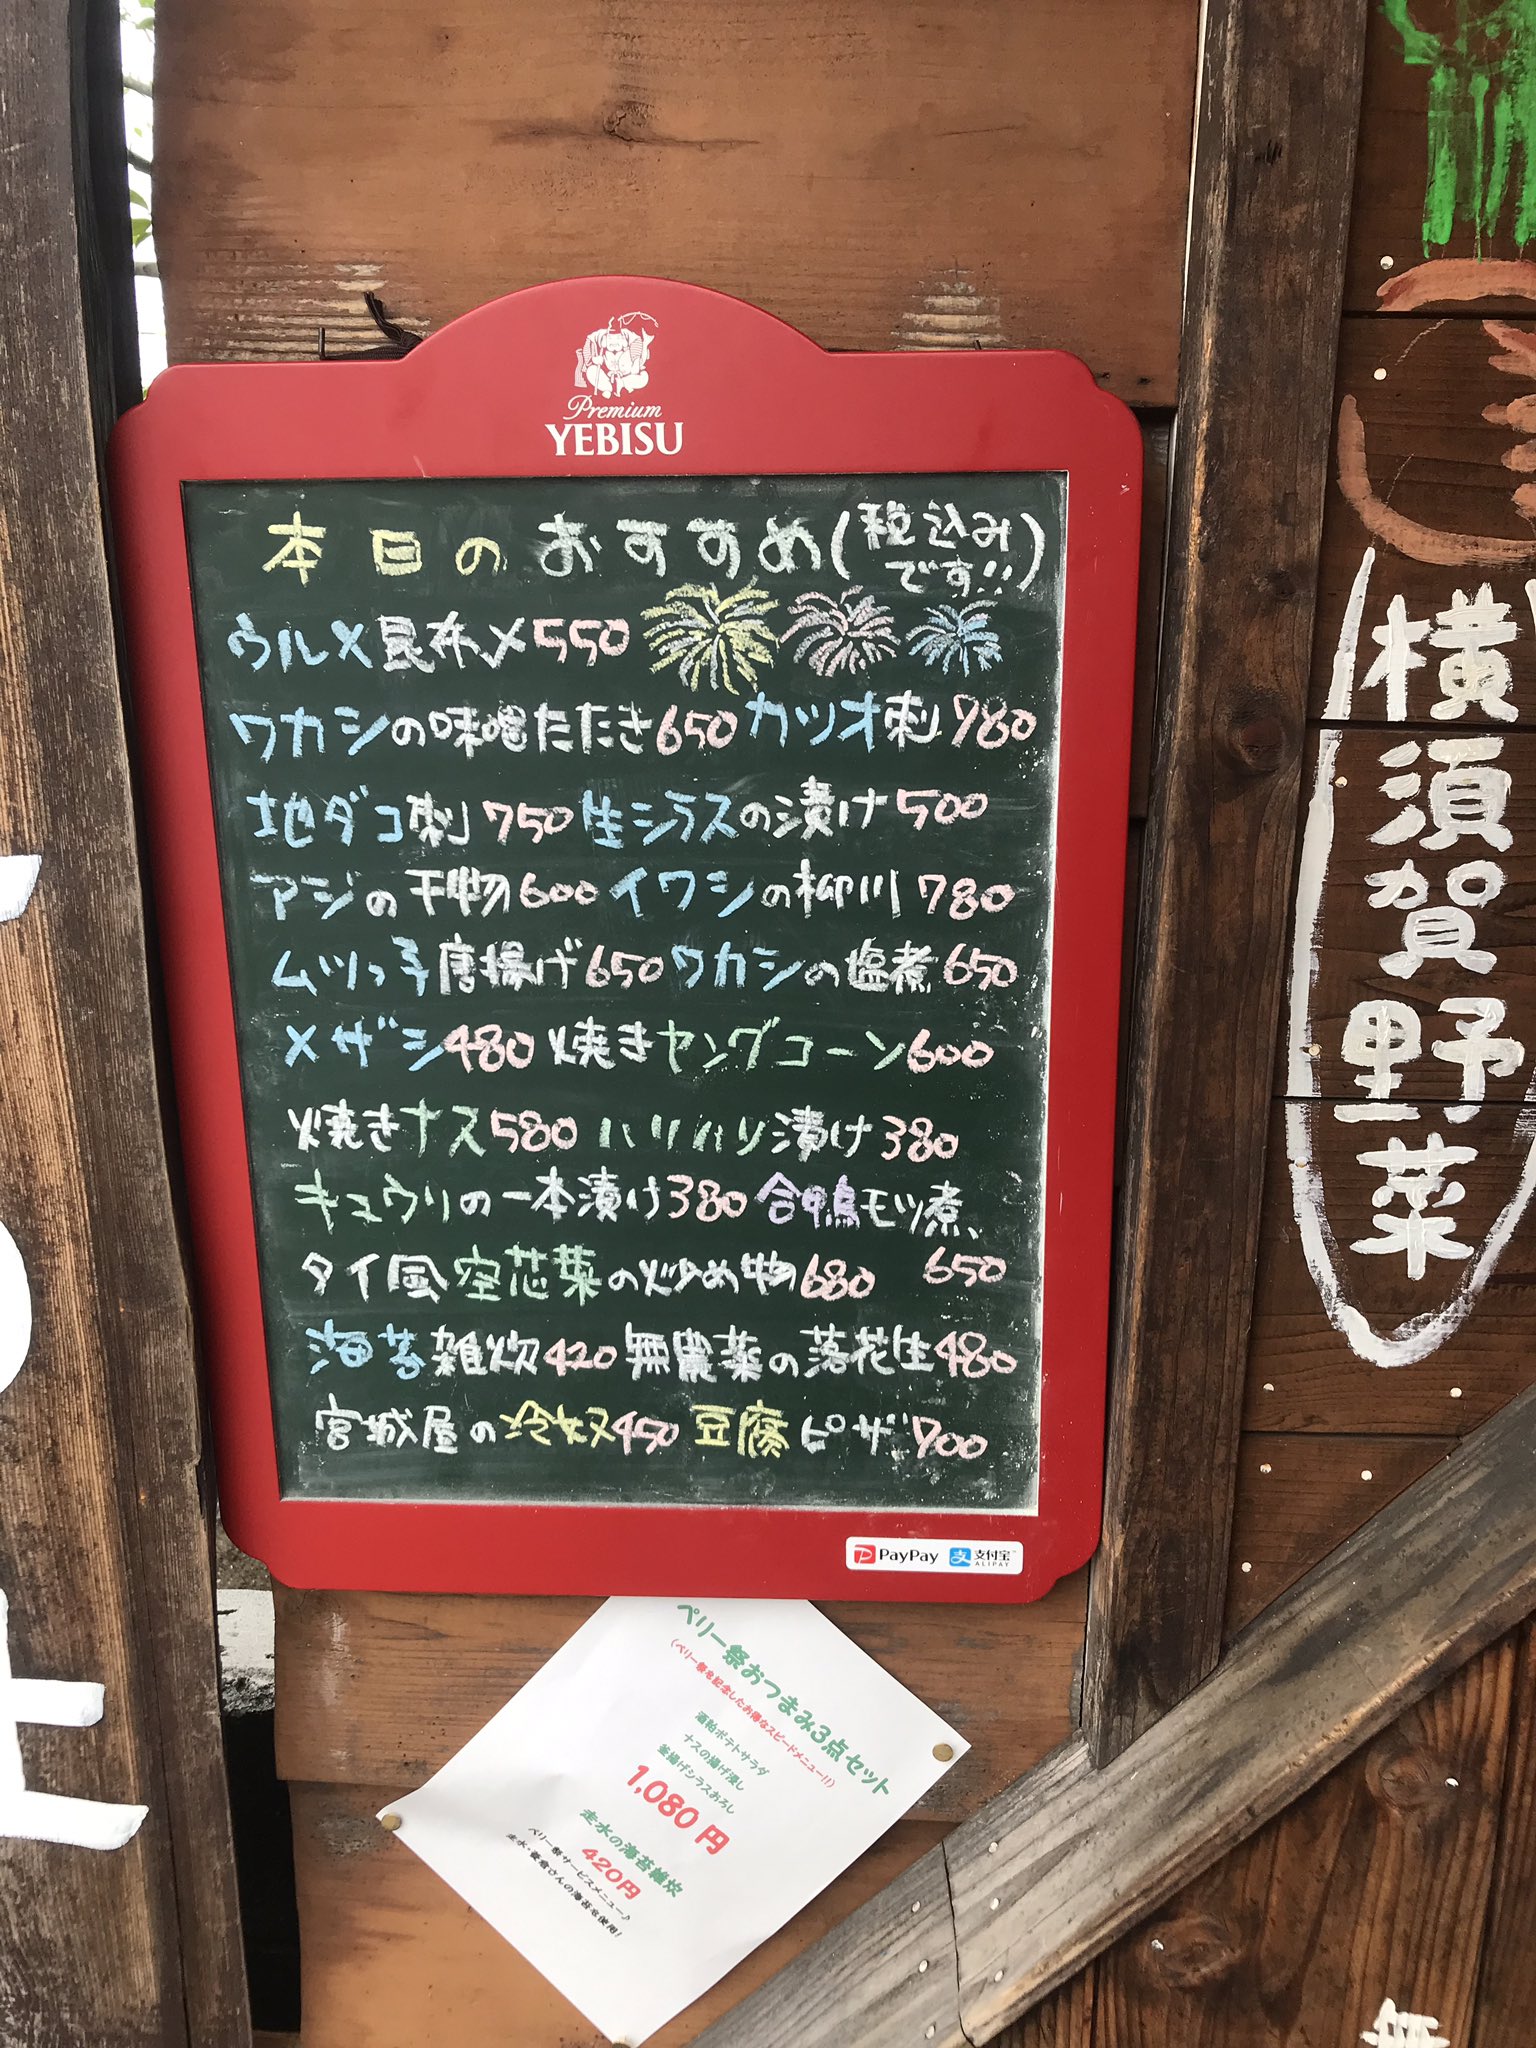 Premium
YEBISU
本日のおすすめ(税込みです!!)
ウルメ昆布〆550
ワカシの味噌たたき650 カツオ刺980
地ダコ刺750 生シラスの漬け500
アジの干物600 イワシの柳川780
ムツっ子唐揚げ650 ワカシの塩煮650
メザシ480 焼きヤングコーン600
焼きナス580 ハリハリ漬け380
キュウリの一本漬け380 合鴨モツ煮、
タイ風空芯菜の炒め物680 650
海苔雑炊420 無農薬の落花生480
宮城屋の冷奴450 豆腐ピザ700
PayPay 支付宝
ALIPAY
ペリー祭おつまみ3点セット
(ペリー祭を記念したお得なスピードメニュー!!)
酒粕ポテトサラダ
ナスの揚げ浸し
釜揚げシラスおろし
1,080円
走水の海苔雑炊
420円
ペリー祭サービスメニュー♪
横須賀野菜
無